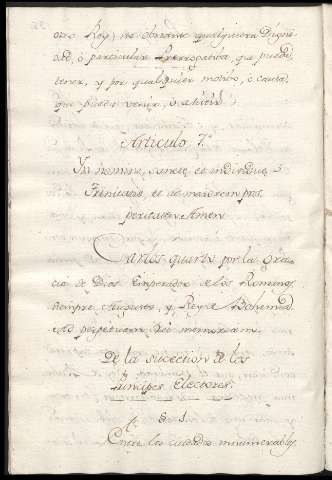 otro Rey) no obstante qualquiera Digni=
dad, ó particular Prerrogativa, que puedā
tener, y por qualquier motivo, ó causa,
que pueda venir, ó
Articulo 7.º
In nomine, Sancte, et individue
Trinitatis, et ad maiorem pros
peritatem Amen
Carlos quarto por la Gra=
cia de Dios Emperador de los Romanos,
siempre Augusto, y Rey de Bohemia,
Ad perpetuam Rei memoriam.
De la succecion de los
Principes Electores.
§ 1.
Entre los cuidados innumerables,